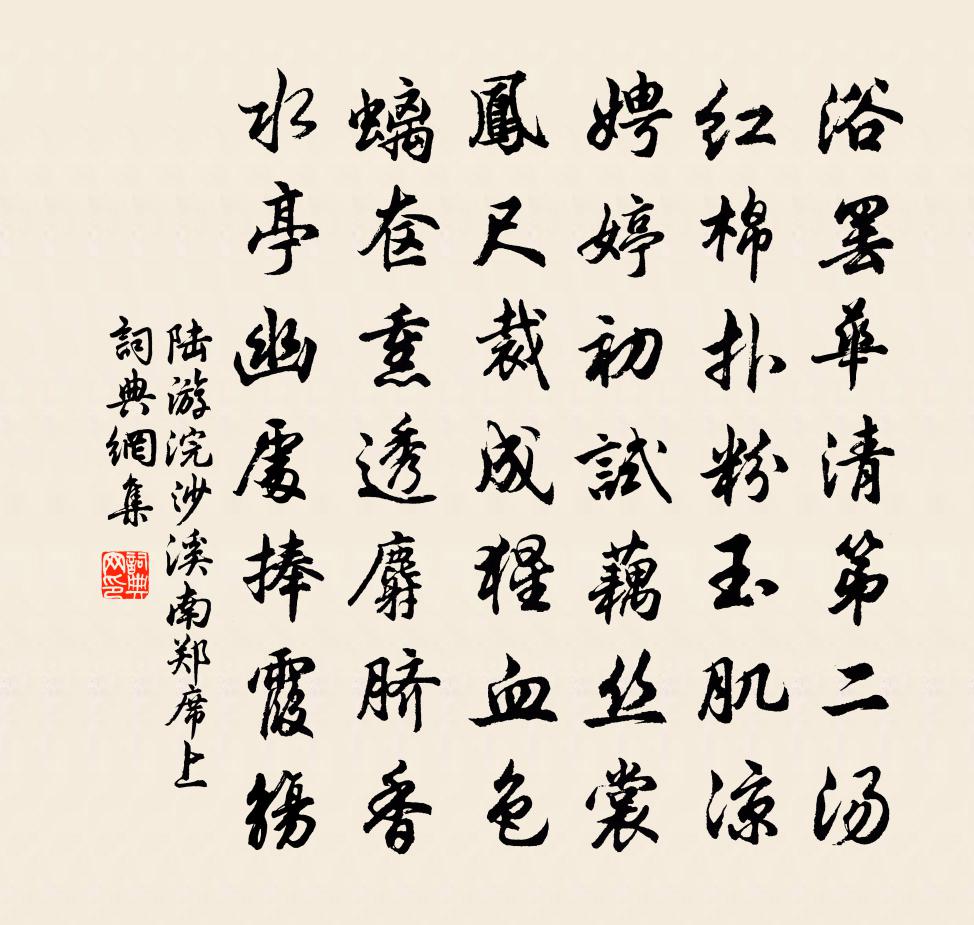 浴罢華清第二汤
红棉扑粉玉肌涼
娉婷初試藕丝裳
鳳尺裁成猩血色
螭奁熏透麝脐香
水亭幽處捧霞觴
陆游浣沙溪南郑席上
詞典網集
詞典网印